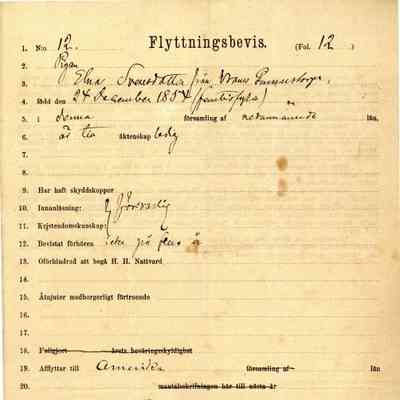 1. No 12. Flyttningsbevis. (Fol. 12)
2. Pigan
3. Elna Svensdotter från Vrams Gunnarstorp,
4. född den 24 December 1854 (femtiofyra)
5. i denna församling af nedannämnde län,
6. är till äktenskap ledig
7.
8.
9. Har haft skyddskoppor
10. Innanläsning:
11. Kristendomskunskap: försvarlig
12. Bevistat förhören icke på flera år
13. Oförhindrad att begå H. H. Nattvard
14.
15. Åtnjuter medborgerligt förtroende
16.
17.
18. Fullgjort årets beväringsskyldighet
19. Afflyttar till Amerika församling af län
20. mantalsskrifningen här till nästa år